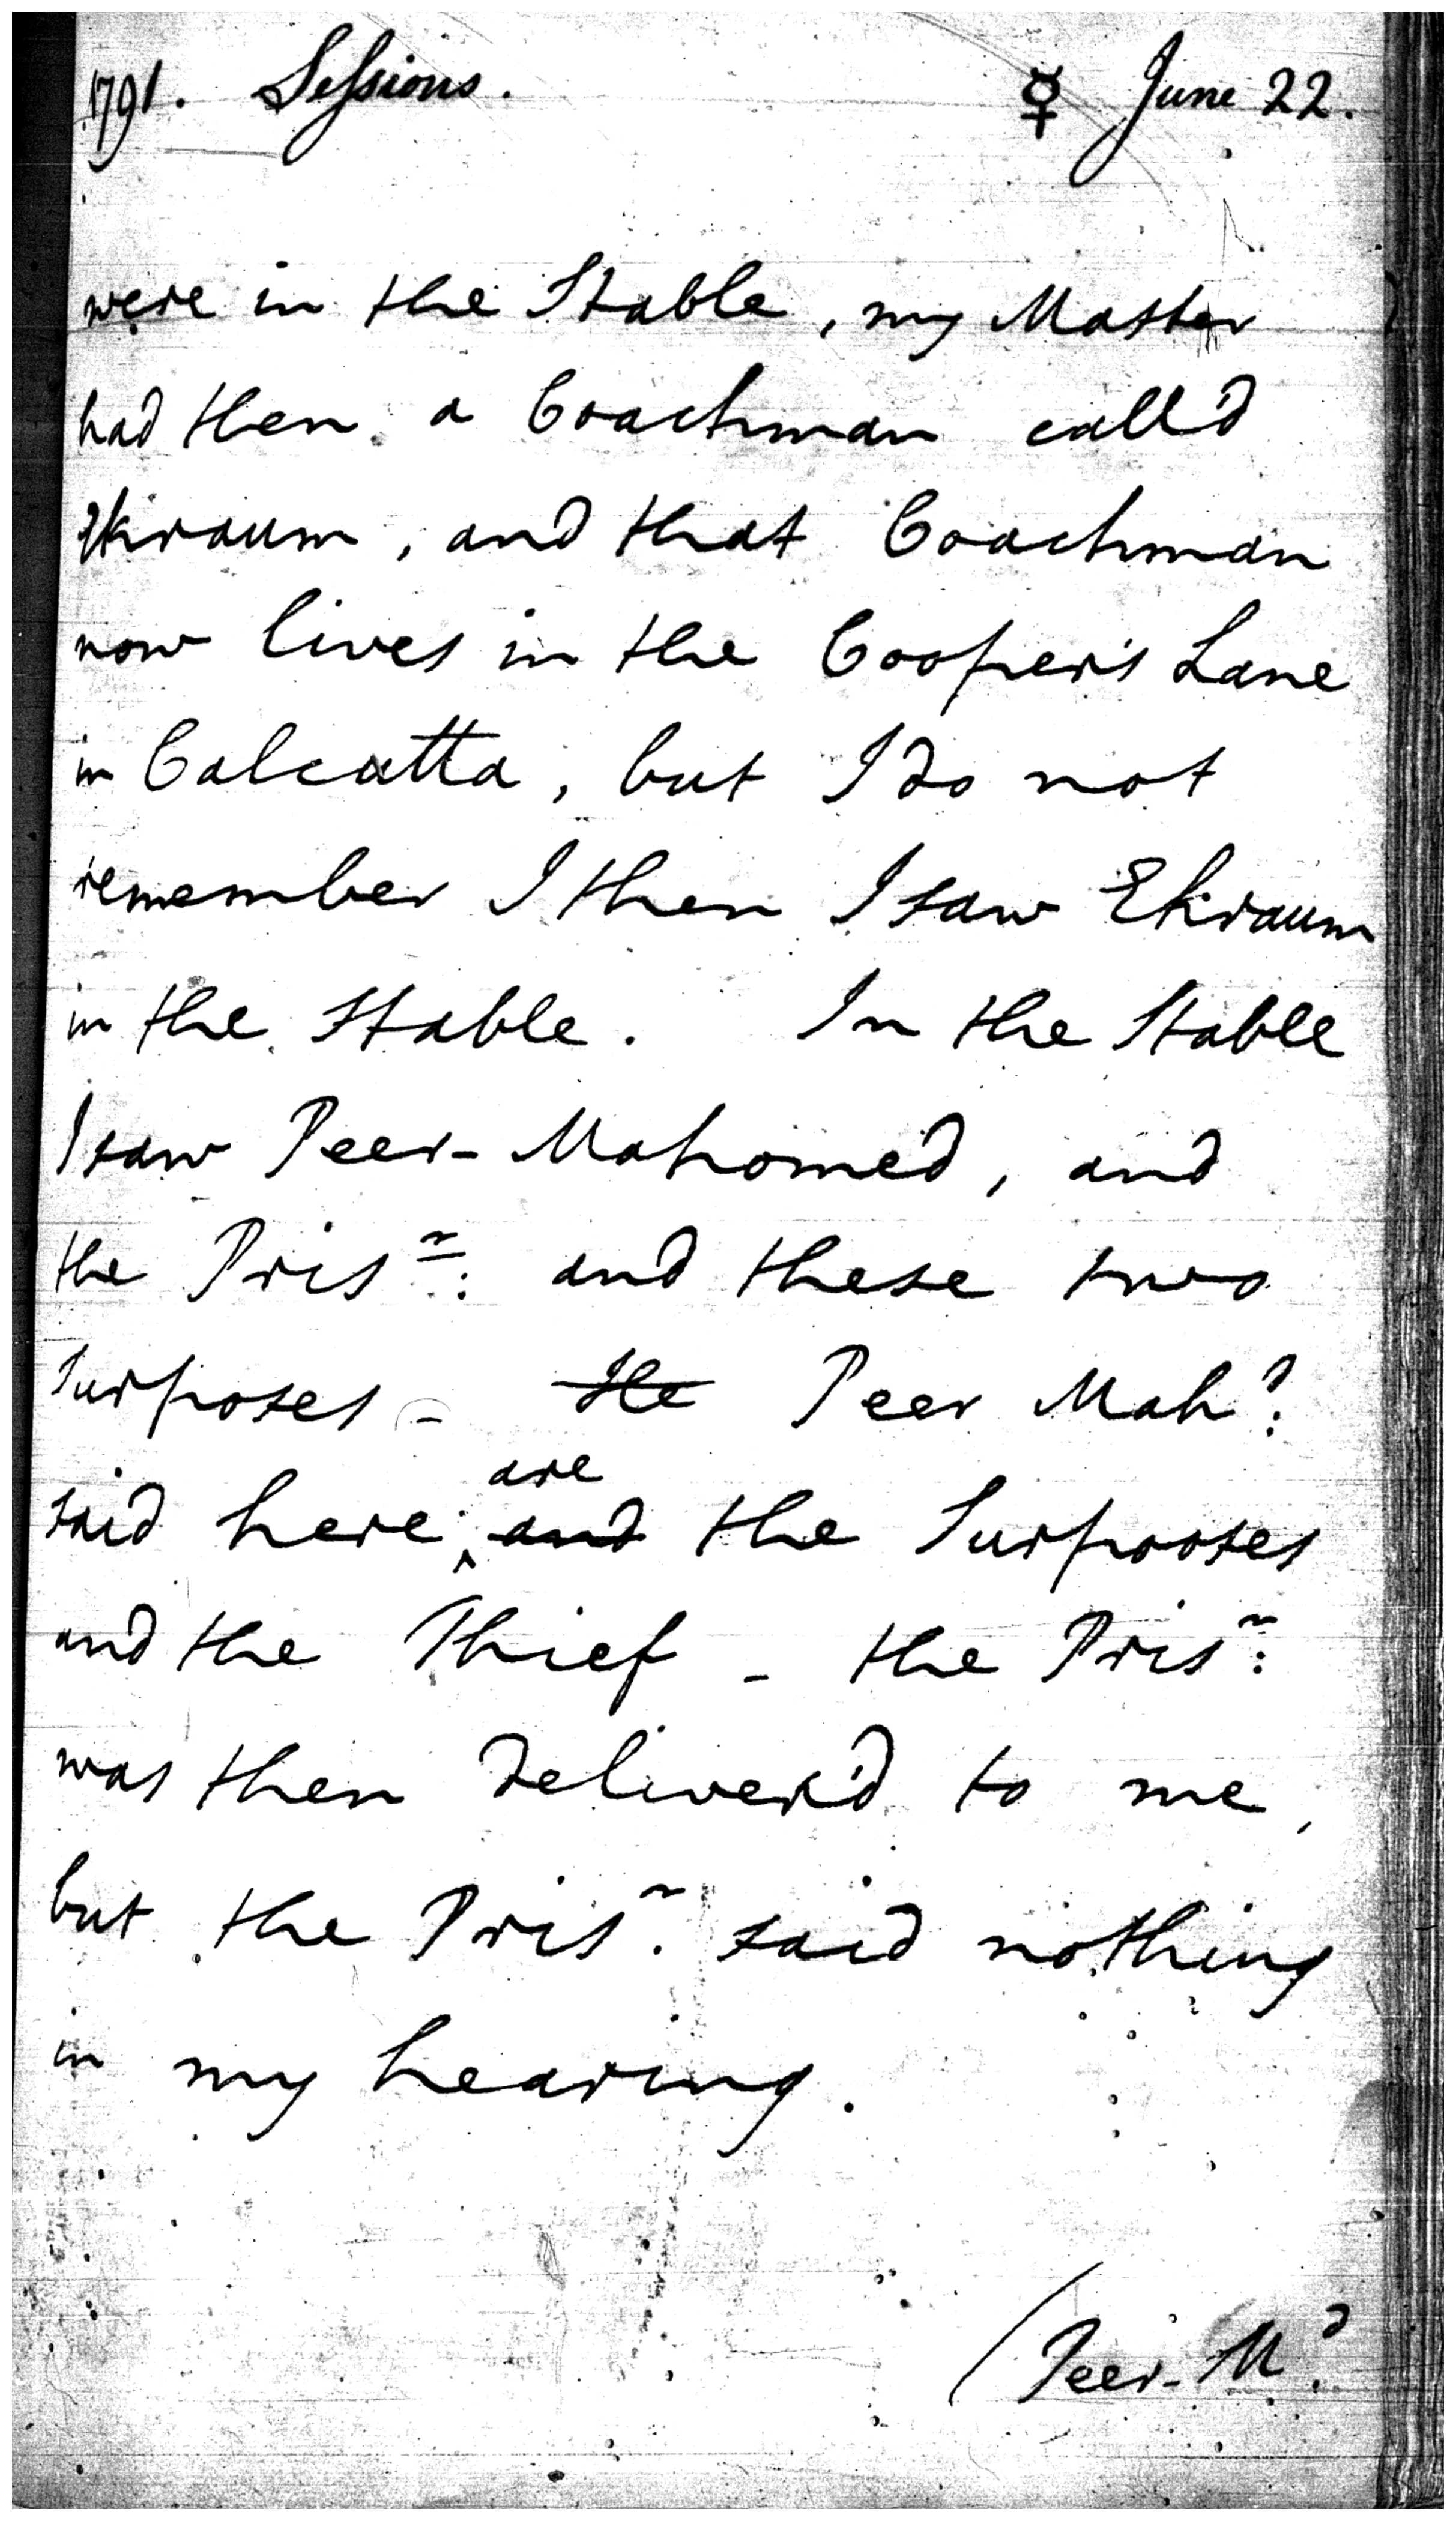 1791. Sessions. ☿ June 22.
were in the Stable, my Master
had then a Coachman call'd
Ekraum, and that Coachman
now lives in the Cooper's Lane
in Calcutta, but I do not
remember I then I saw Ekraum
in the stable. In the Stable
I saw Peer-Mahomed, and
the Prisr: and these two
Surposes - He Peer Mahd:
said here are and the Surposes
and the Thief - the Prisr:
was then deliver'd to me,
but the Prisr. said nothing
in my hearing.
(Peer-Md.